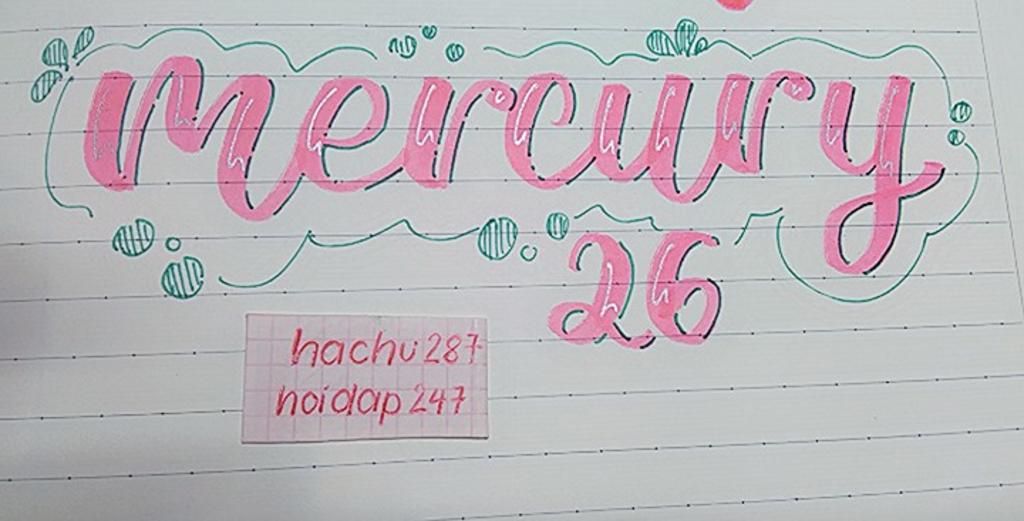 mercury
26
hachu287
hoidap247